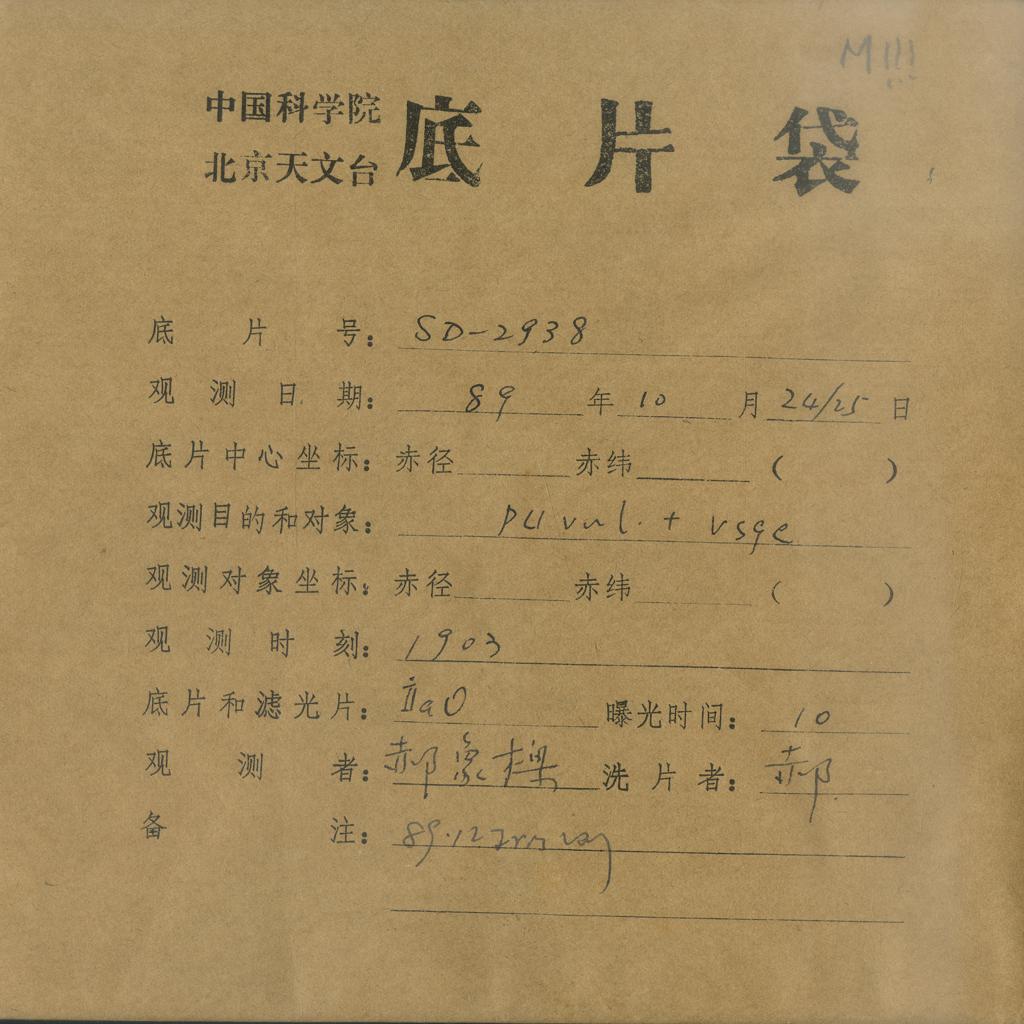 M!!!
中国科学院
北京天文台
底片袋
底片号：SD-2938
观测日期：89年10月24/25日
底片中心坐标：赤径 赤纬 （ ）
观测目的和对象：PU vul. + vsge
观测对象坐标：赤径 赤纬 （ ）
观测时刻：1903
底片和滤光片：IIaO 曝光时间：10
观测者：郝象樑 洗片者：郝
备注：89.12